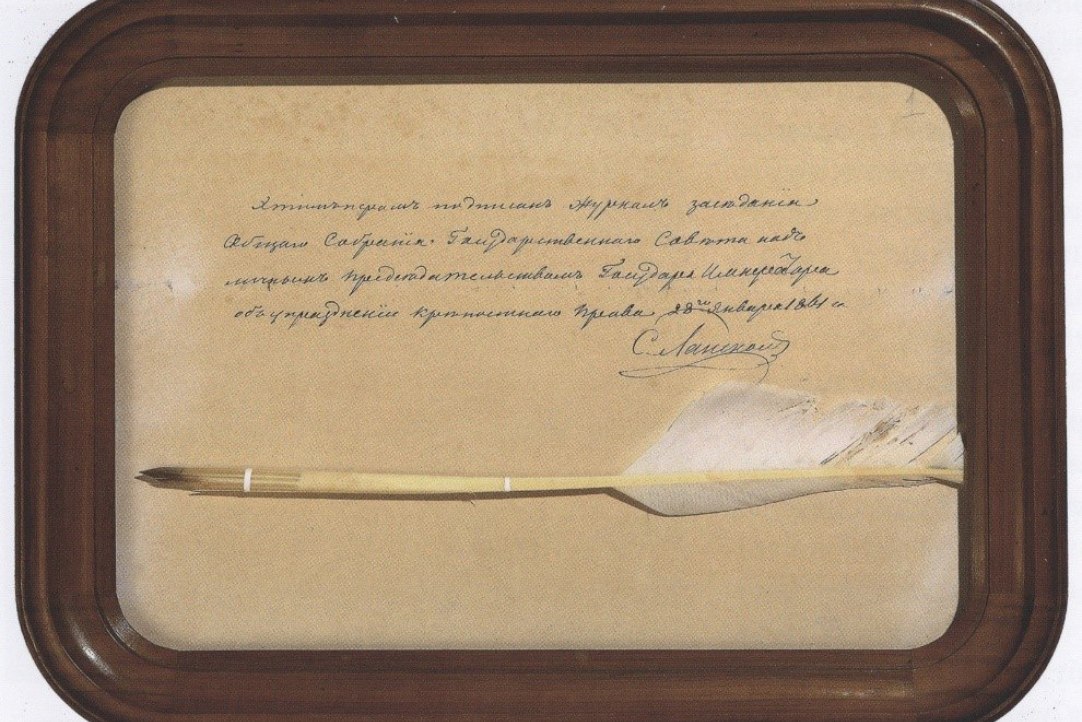 Этимъ перомъ подписанъ журналъ засѣданія
Общаго Собранія Государственнаго Совѣта подъ
личнымъ предсѣдательствомъ Государя Императора
объ упраздненіи крѣпостнаго права 28го Января 1861 го
С. Ланской